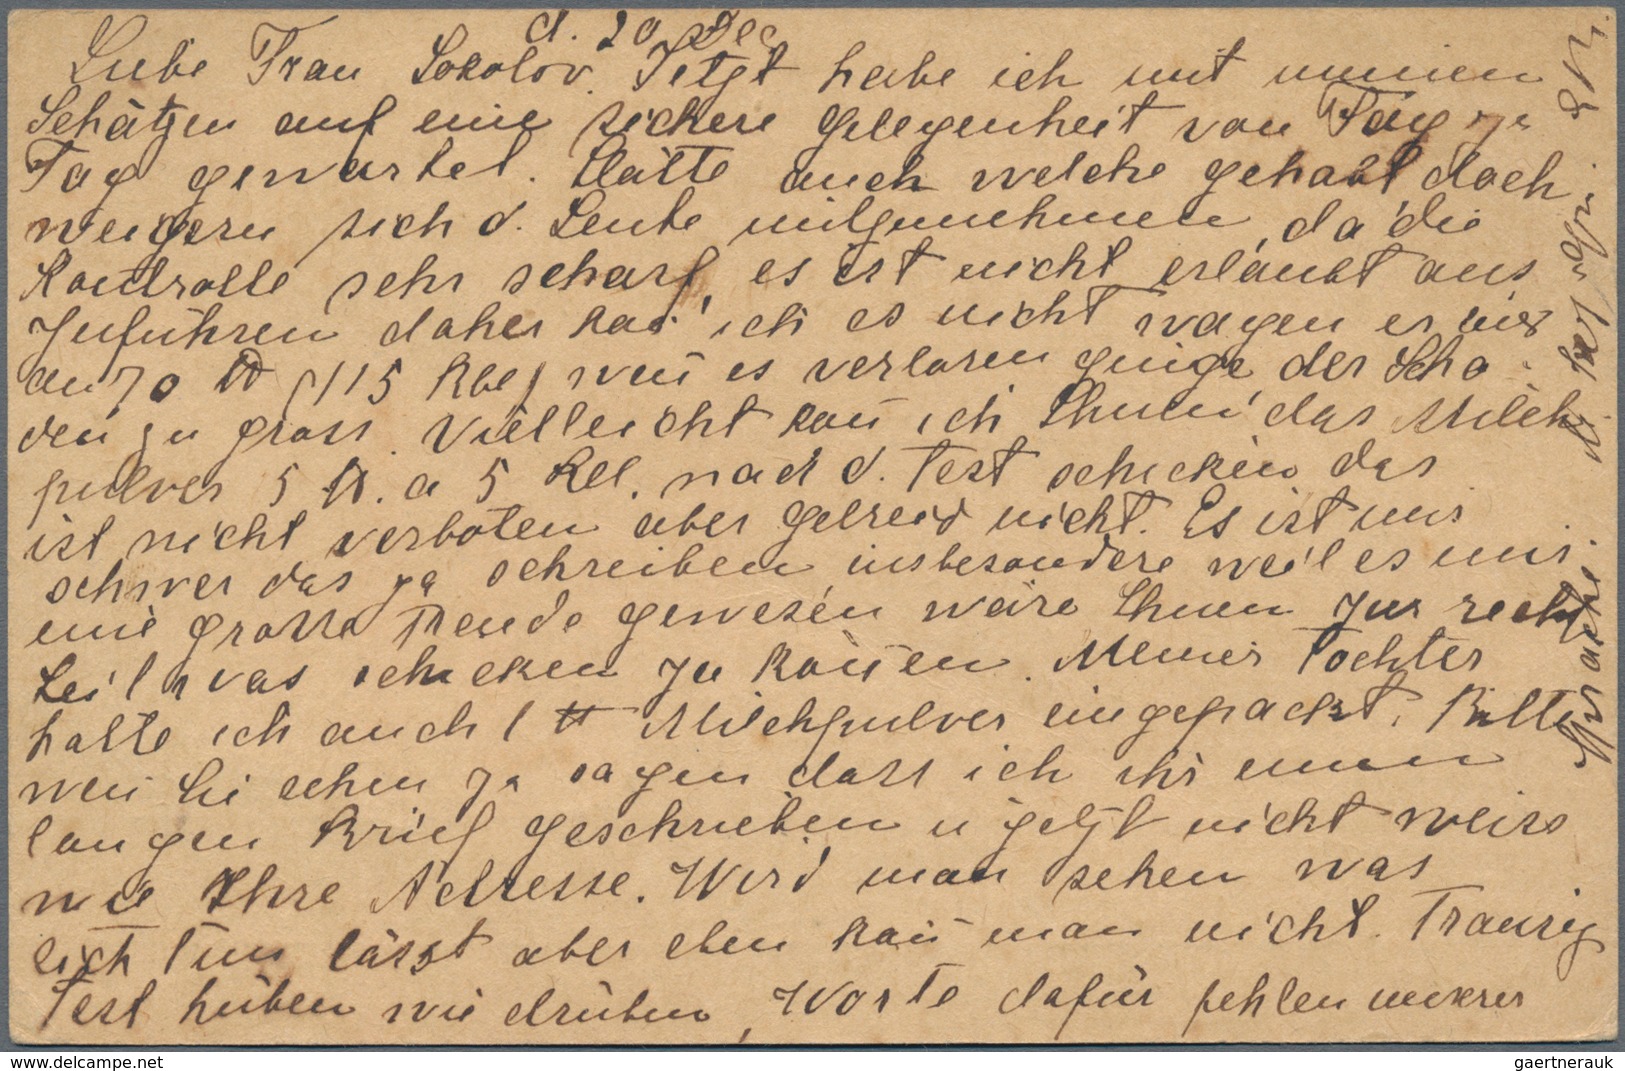 d. 20 Dec
Liebe Frau Sokolov. Jetzt habe ich mit meinen
Schätzen auf eine sichere Gelegenheit von Tag zu
Tag gewartet. Hätte auch welche gehabt doch
weigern sich d. Leute mitzunehmen, da die
Kontrolle sehr scharf, es ist nicht erlaubt aus
zuführen daher kan̄ ich es nicht wagen es
an 70 ℔ (115 Rbl) wen̄ es verloren ginge der Scha
den zu gross. Vielleicht kan̄ ich Ihnen das Milch
pulver 5 ℔. a 5 Rbl. nach d. Fest schicken das
ist nicht verboten aber Getreid nicht. Es ist mir
schwer das zu schreiben insbesondere weil es mir
eine grosse Freude gewesen wäre Ihnen zur recht
Zeit was schicken zu kön̄en. Meiner Tochter
hatte ich auch 1 ℔ Milchpulver eingepackt. Bitte
wen̄ Sie sehen zu sagen dass ich ihr einen
langen Brief geschrieben u jetzt nicht weiss
wie Ihre Adresse. Wird man sehen was
sich tun lässt aber eben kan̄ man nicht. Traurig
Fest hüben wie drüben, Worte dafür fehlen unserer
Sprache.
www.delcampe.net
gaertnerauk